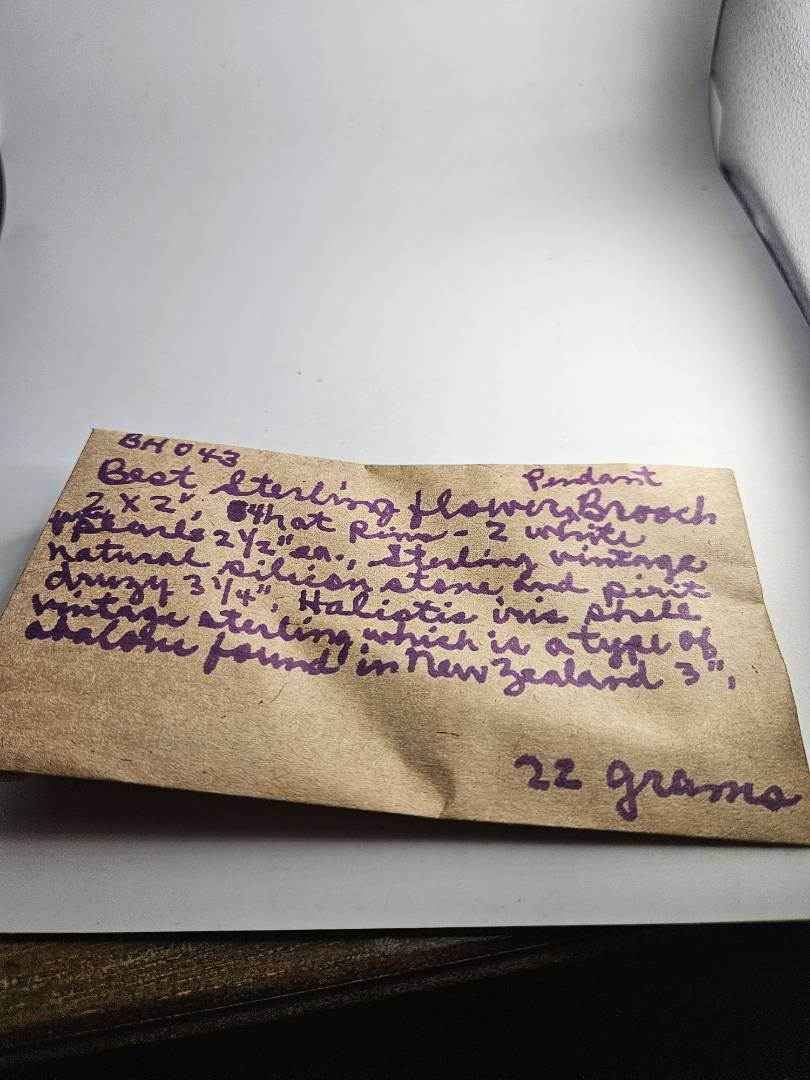 BH 043
Pendant
Best Sterling flower, Brooch
2 X 2", 4 hat Pins - 2 white
pearls 2 1/2" ea., Sterling vintage
natural silicon stone and pirit
druzy 3 1/4", Haliotis iris shell
vintage sterling which is a type of
abalone found in New Zealand 3",
22 grams